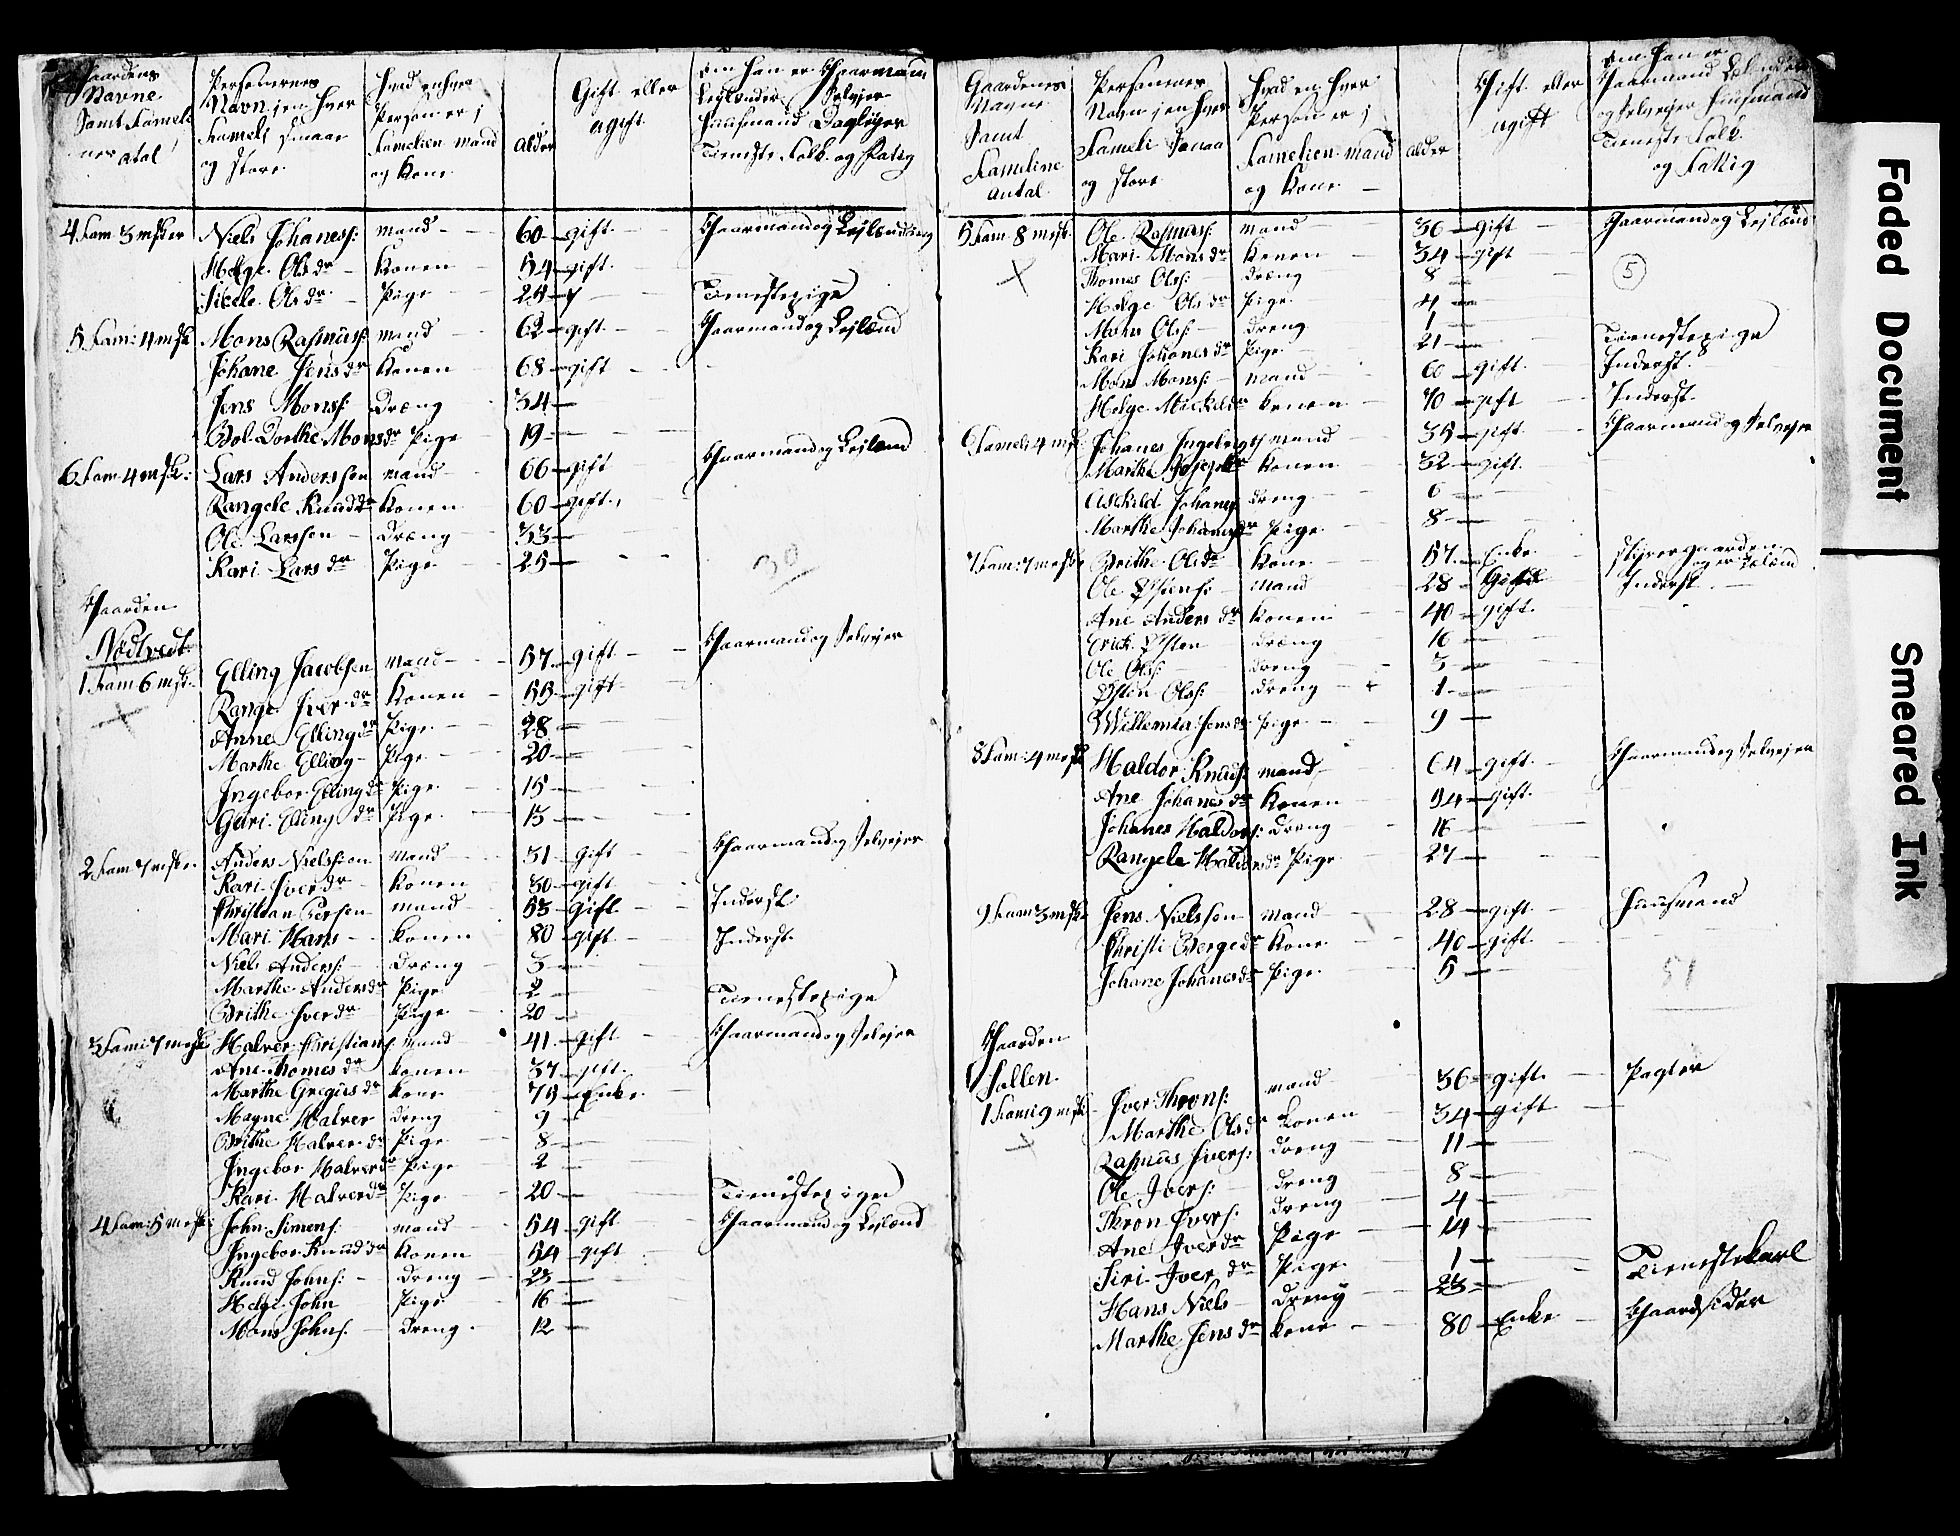 Gaardens
Navne
Samt Famels
nes Atal
Personernes
Navn jen hver
Famels smaae
og store
Hvad enhver
Person er j
Famelien mand
og Kone
alder
Gift eller
ugift
om han er Gaarmand
Leilænder Selvejer
Huusmand Dagløger
Tieneste Folk og Fatig
4 Fam 3 msker Niels Johaness: mand 60 gift Gaarmand og Lejlænding
Helge Olsdr Konen 54 gift
Sicele Olsdr Pige 24 Tienestepige
5 Fam: 4 msk Mons Rasmus: mand 62 gift Gaarmand og Lejlænd
Johane Jensdr Konen 68 gift
Jens Monss: Dræng 34
Bol Dorthe Monsdr Pige 19
6 Fam 4 msk: Lars Anderssen mand 66 gift Gaarmand og Lejlænd
Rangele Knudsdr Konen 60 gift
Ole Larssen Dræng 33
Kari Larsdr Pige 25
30
Gaarden
Nødtvedt
1 Fam 6 msk. Elling Jacobsen mand 57 gift Gaarmand og Selvejer
Range Iverdr Konen 55 gift
Anne Ellingdr Pige 28
Marthe Elling Pige 20
Ingebor Ellingdr Pige 15
Guri Elling dr Pige 13
2 Fam 7 msker Anders Nielssen mand 31 Gift Gaarmand og Selvejer
Kari Iverdr Konen 30 gift
Christian mand 53 Gift Inderst
Mari Hans Konen 80 gift Inderst
Niels Anderss: Dræng 3
Marthe Andersdr Pige 2
Brithe Iverdr Pige 20 Tienestepige
3 Fami 7 msk Halver Christians mand 41 Gift Gaarmand og Selvejer
Ane Thomes dr Konen 37 gift
Marthe Gregus dr Kone 79 Enke
Magne Halver dreng 9
Brithe Halver dr Pige 8
Ingebor Halverdr Pige 2
Kari Halverdr Pige 20 Tienestepige
4 Fam: 5 msk John Simens: mand 54 gift Gaarmand og Lejlænd
Ingebor Knud dr Konen 54 gift
Knud Johns: dreng 23
Helge John Pige 16
Mons Johns. dreng 12
Gaardenes
Navne
Samt
Fameliene
antal
Personnes
Navn jen hver
Fameli Smaa
og store
Hvad en hver
Person er j
Famelien mand
og Kone
alder
Gift eller
ugift
om han er
Gaarmand Lejlænder
og selvejer Huusmand
Tieneste Folk
og Fattig
5 Fam 8 msk. Ole Rasmus: mand 36 gift Gaarmand og Lejlænd
Mari Mons dr Konen 34 gift
5
Thomes Olss: dræng 8
Helge Ols dr Pige 4
Mons Olss: dreng 1
Kari Johanes dr Pige 21 Tienestepige
Mons Monss: mand 60 gift Inderst.
Helge Konen 70 gift Inderst
6 Fameli 4 msk Johanes mand 35 gift Gaarmand og Selvejer
Marthe Konen 32 gift
Askild Johanes dreng 6
Marthe Johanesdr Pige 8
7 Fam: 7 msk Brithe Olsdr Kone 57 Enke styrer gaarden og er Lelænd
Ole Østens: mand 28 Gift Inderst
Ane Anders dr Konen 40 gift
Erick Østen dræng 16
Ole Ols: dreng 3
Østen Olss: dreng 1
Willemia Jensdr pige 9
8 Fam: 4 msk Haldor Knuds: mand 64 gift Gaarmand og Selvejer
Ane Johanes dr Konen 54 gift
Johanes Haldors: dreng 16
Rangele Haldorsdr Pige 27
9 Fam 3 msk Jens Nielssen mand 28 gift Huusmand
Christi Bergedr Kone 40 gift
Johane Johanesdr Pige 5
51
Gaarden
Sollen
1 Fami 9 msk Iver Throns: mand 36 gift Pagter
Marthe Olsdr Konen 34 gift
Rasmus Ivers: dreng 11
Ole Ivers: dreng 8
Thron Ivers: dreng 4
Ane Iverdr Pige 14
Siri Iver dr Pige 1
Hans Niels dreng 23 Tienestekarl
Marthe Jens dr kone 80 Enke
Faded Document
Smeared Ink